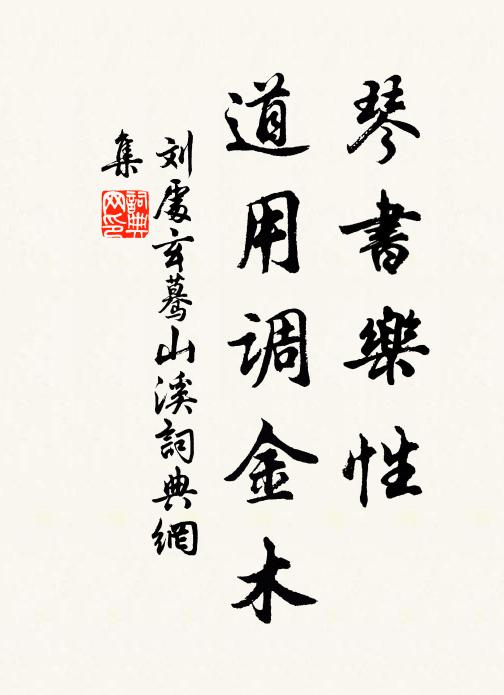 琴書樂性
道用调金木
刘處玄驀山溪詞典網
集
詞典网印